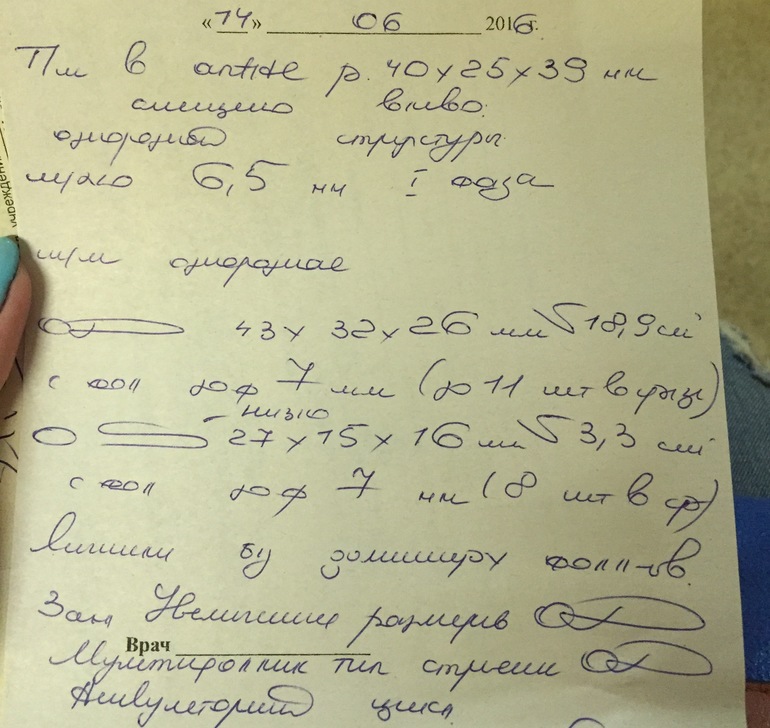 «14» 06 2016г.
Тм в antefl р. 40х25х39 мм
смещено влево.
однородной структуры
м/эхо 6,5 мм I фаза
ш/м однородная
43х 32х26 мм V 18,9 см³
с фол д оф 7 мм (до 11 шт в срезе)
низко
27х15х16 мм V 3,3 см³
с фол д оф 7 мм (8 шт в ср)
яичники б/у доминир фолл-ов.
Зак Увеличение размеров
Врач
Мультифоллик тип строен
Ановуляторный цикл